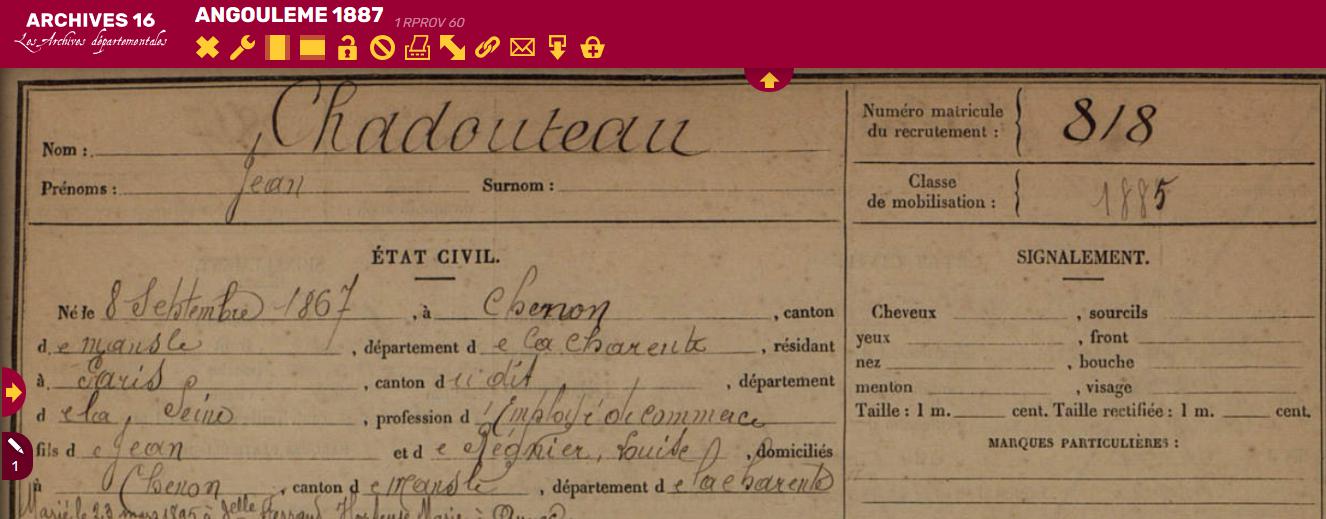 ARCHIVES 16
Les Archives départementales
ANGOULEME 1887 1 RPROV 60
Nom : Chadouteau
Prénoms : Jean Surnom :
Numéro matricule du recrutement : 818
Classe de mobilisation : 1885
ÉTAT CIVIL.
Né le 8 Septembre 1867, à Chenon, canton
de mansle, département de la Charente, résidant
à Paris, canton du dit, département
de la Seine, profession d'Employé de commerce
fils de Jean et de Régnier, Louise, domiciliés
à Chenon, canton de mansle, département de la charente
Marié le 23 mars 1895 à Jelle Hortense Marie à
SIGNALEMENT.
Cheveux , sourcils
yeux , front
nez , bouche
menton , visage
Taille : 1 m. cent. Taille rectifiée : 1 m. cent.
MARQUES PARTICULIÈRES :
1